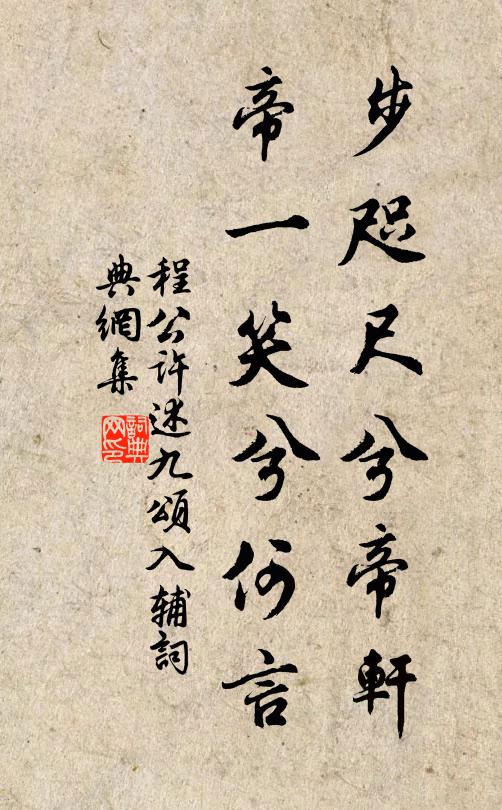 步咫尺兮帝軒
帝一笑兮何言
程公许述九頌入輔詞
典網集
詞典网印